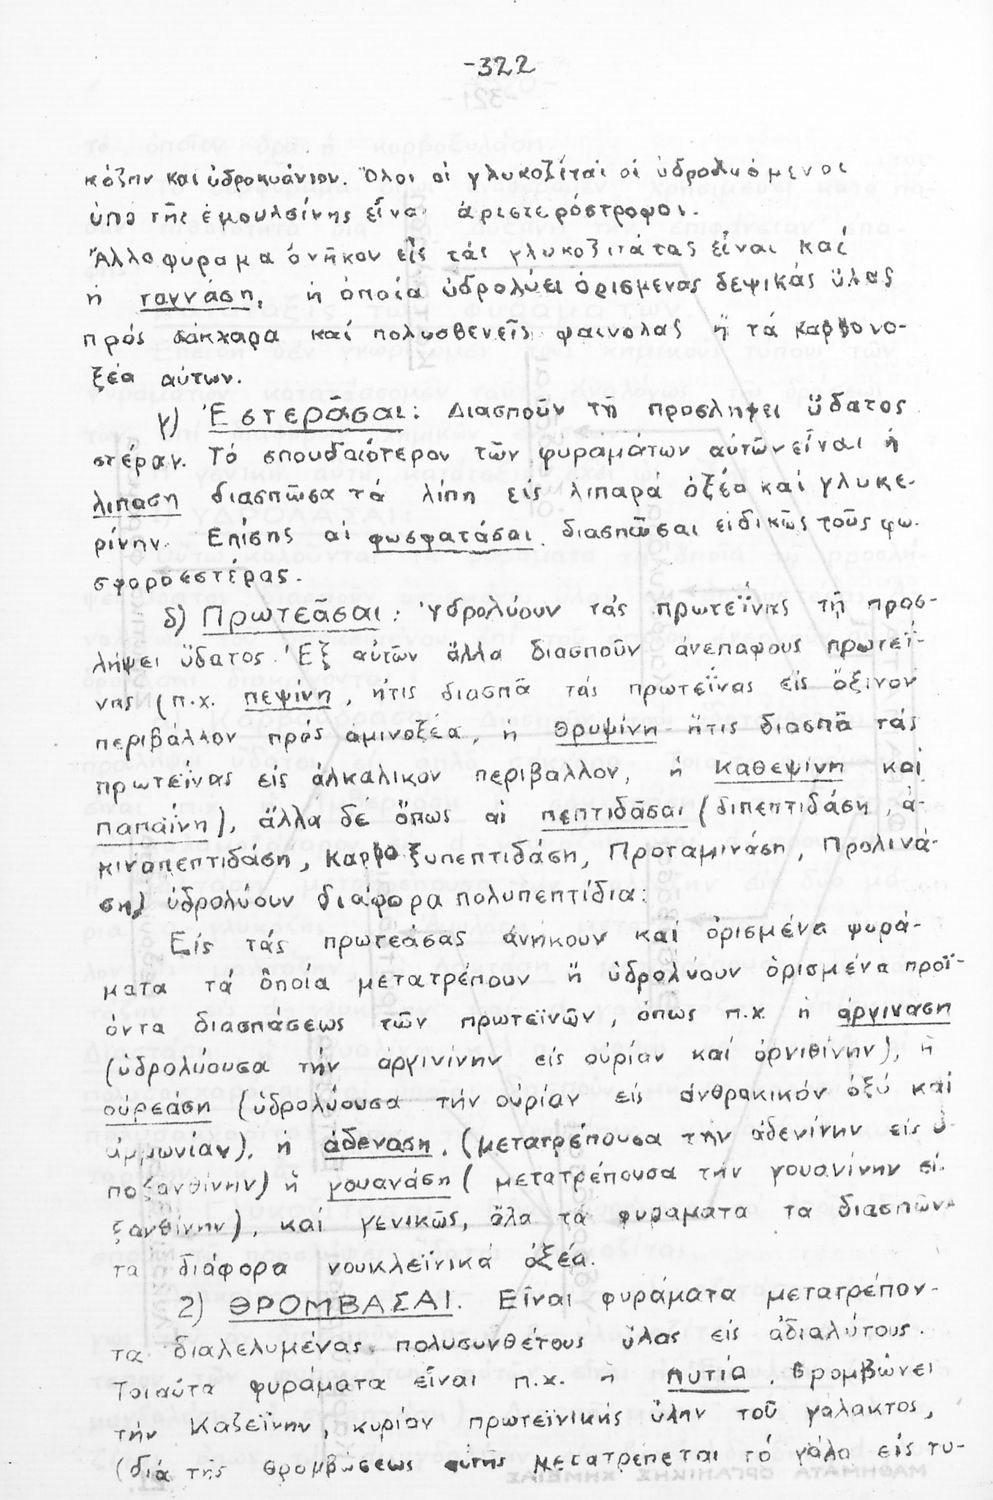 -322
κόζην καί ὑδροκυάνιον. Ὅλοι οἱ γλυκοζῖται οἱ ὑδρολυόμενοι
ὑπό τῆς ἐμουλσίνης εἶναι ἀριστερόστροφοι.
Ἄλλο φύραμα ἀνῆκον εἰς τάς γλυκοζιτάσας εἶναι καί
ἡ ταννάση, ἡ ὁποία ὑδρολύει ὁρισμένας δεψικάς ὕλας
πρός σάκχαρα καί πολυσθενεῖς φαινόλας ἤ τά καρβονο-
ξέα αὐτων.
γ) Ἐστερᾶσαι: Διασποῦν τῇ προσλήψει ὕδατος
στέραν. Τό σπουδαιότερον τῶν φυραμάτων αὐτῶν εἶναι ἡ
λιπάση διασπῶσα τά λίπη εἰς λιπαρά ὀξέα καί γλυκε-
ρίνην. Ἐπίσης αἱ φωσφατάσαι διασπῶσαι εἰδικῶς τούς φω-
σφοροεστέρας.
δ) Πρωτεᾶσαι: Ὑδρολύουν τάς πρωτεΐνας τῇ προσ-
λήψει ὕδατος. Ἐξ αὐτῶν ἄλλα διασποῦν ἀνεπάφους πρωτεΐ-
νας (π.χ. πεψίνη, ἥτις διασπᾶ τάς πρωτεΐνας εἰς ὄξινον
περιβάλλον πρός ἀμινοξέα, ἡ θρυψίνη ἥτις διασπᾶ τάς
πρωτεΐνας εἰς ἀλκαλικόν περιβάλλον, ἡ καθεψίνη καί
παπαΐνη), ἄλλα δέ ὅπως αἱ πεπτιδᾶσαι (διπεπτιδάση, ἀ-
μινοπεπτιδάση, καρβοξυπεπτιδάση, Προταμινάση, Προλινά-
ση) ὑδρολύουν διάφορα πολυπεπτίδια.
Εἰς τάς πρωτεάσας ἀνήκουν καί ὁρισμένα φυρά-
ματα τά ὁποῖα μετατρέπουν ἤ ὑδρολύουν ὁρισμένα προϊ-
όντα διασπάσεως τῶν πρωτεϊνῶν, ὅπως π.χ ἡ ἀργινάση
(ὑδρολύουσα τήν ἀργινίνην εἰς οὐρίαν καί ὀρνιθίνην), ἡ
οὐρεάση (ὑδρολύουσα τήν οὐρίαν εἰς ἀνθρακικόν ὀξύ καί
ἀμμωνίαν), ἡ ἀδενάση, (μετατρέπουσα τήν ἀδενίνην εἰς ὑ-
ποξανθίνην) ἡ γουανάση (μετατρέπουσα τήν γουανίνην εἰ
ξανθίνην), καί γενικῶς, ὅλα τά φυράματα τά διασπῶν-
τα διάφορα νουκλεϊνικά ὀξέα.
2) ΘΡΟΜΒΑΣΑΙ. Εἶναι φυράματα μετατρέπον-
τα διαλελυμένας πολυσυνθέτους ὕλας εἰς ἀδιαλύτους.
Τοιαῦτα φυράματα εἶναι π.χ. ἡ πυτία, θρομβώνει
τήν Καζεΐνην, κυρίαν πρωτεϊνικήν ὕλην τοῦ γάλακτος,
(διά τῆς θρομβώσεως αὐτῆς μετατρέπεται τό γάλα εἰς τυ-